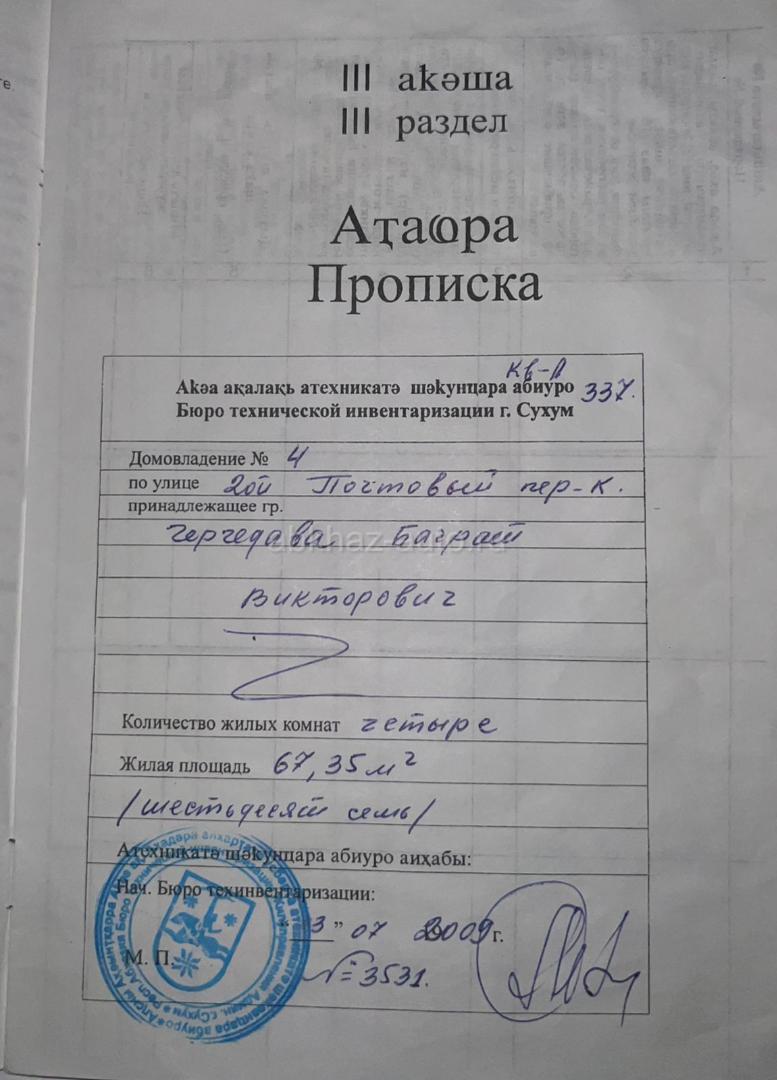 III аҟәша
III раздел
Аҭаҩра
Прописка
кв-л 337.
Аҟәа ақалақь атехникатә шәҟунҵара абиуро
Бюро технической инвентаризации г. Сухум
Домовладение № 4
по улице 2ой Почтовый пер-к.
принадлежащее гр.
Герчедава Баграт
abkhaz-auto.ru
Викторович
Количество жилых комнат четыре
Жилая площадь 67,35 м²
/шестьдесят семь/
Атехникатә шәҟунҵара абиуро аиҳабы:
Нач. Бюро техинвентаризации:
" 3 " 07 2009 г.
М. П. № = 3531.